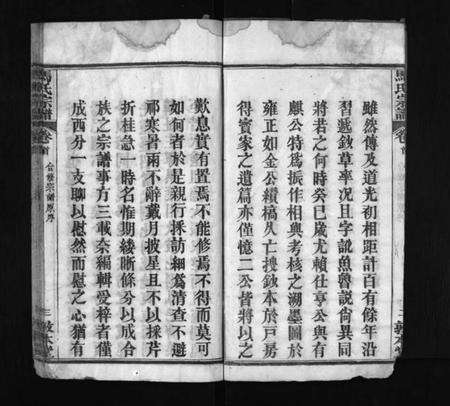 雖然傳及道光初相距計百有餘年沿
習遞鈔草率況且字訛魚魯說尙異同
將若之何時癸巳歲尤賴往亨公與有
麒公特爲振作相與考核之溯墨圖於
雍正如金公續稿久亡搜鈔本於戸房
得實家之遺篇亦僅憶二公皆將以之
歎息實有置焉不能修焉不得而莫可
如何者於是親行採訪細爲清查不避
祁寒暑雨不辭戴月披星且不以採芹
折桂急一時名惟期綾晣條分以成合
族之宗譜事方三載奈編輯受梓者僅
成西分一支聊以慰然而慰之心猶有
馬氏宗譜
卷首
合修宗譜原序
三
敦本堂